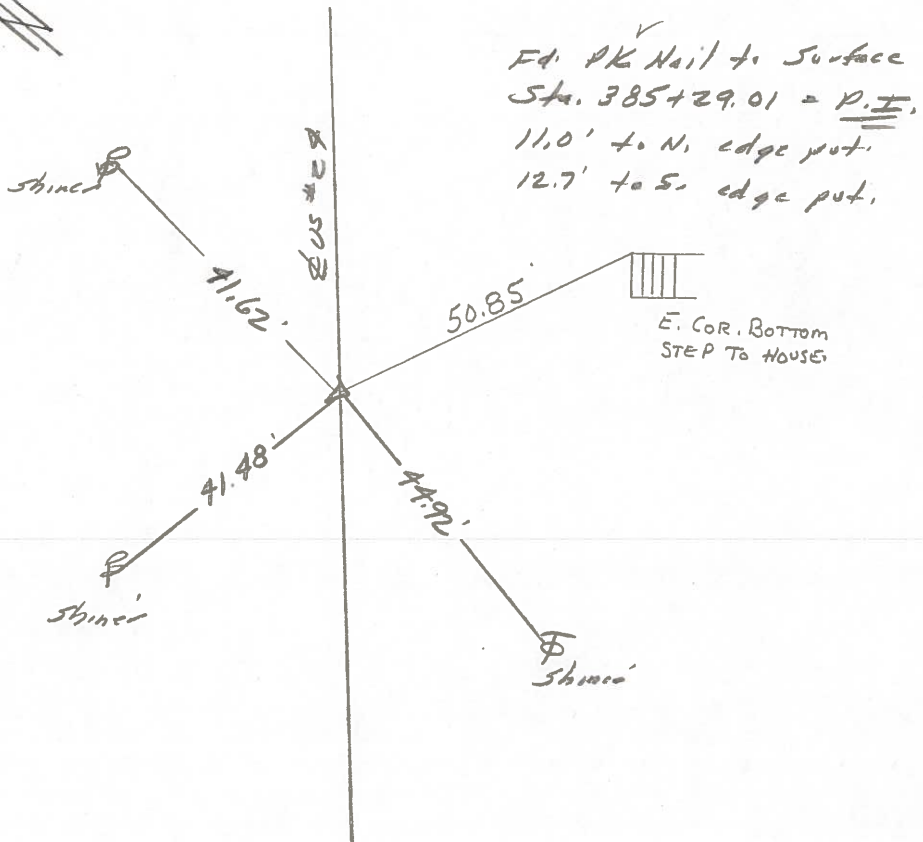 Fd. PK Nail to Surface
Sta. 385+29.01 = P.I.
11.0' to N. edge pvt.
12.7' to S. edge pvt.
Shiner
41.62'
US #27
50.85'
E. COR. BOTTOM
STEP TO HOUSE.
41.48'
44.92'
Shiner
Shiner